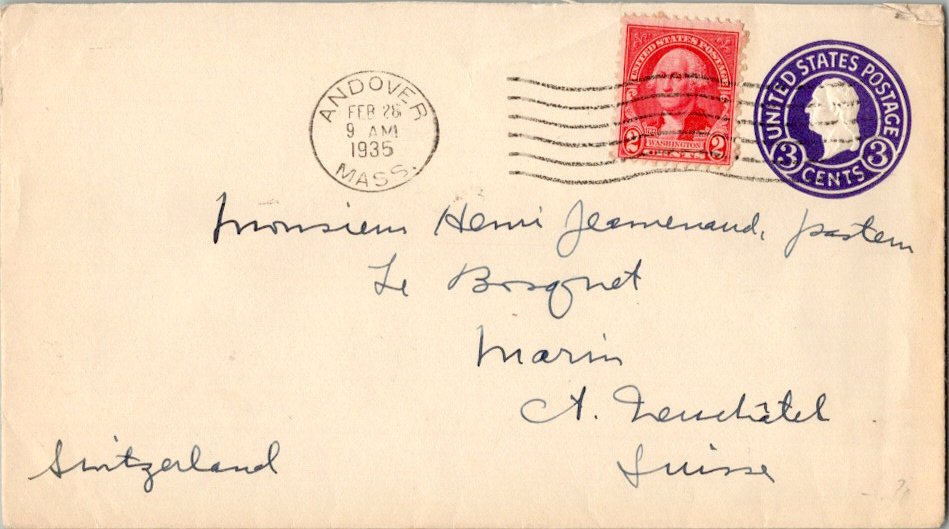 ANDOVER
FEB 28
9 AM
1935
MASS.
UNITED STATES POSTAGE
2 WASHINGTON 2
CENTS
UNITED STATES POSTAGE
3 CENTS 3
Monsieur Henri Jeanrenaud, pasteur
Le Bosquet
Marin
Ct. Neuchâtel
Suisse
Switzerland